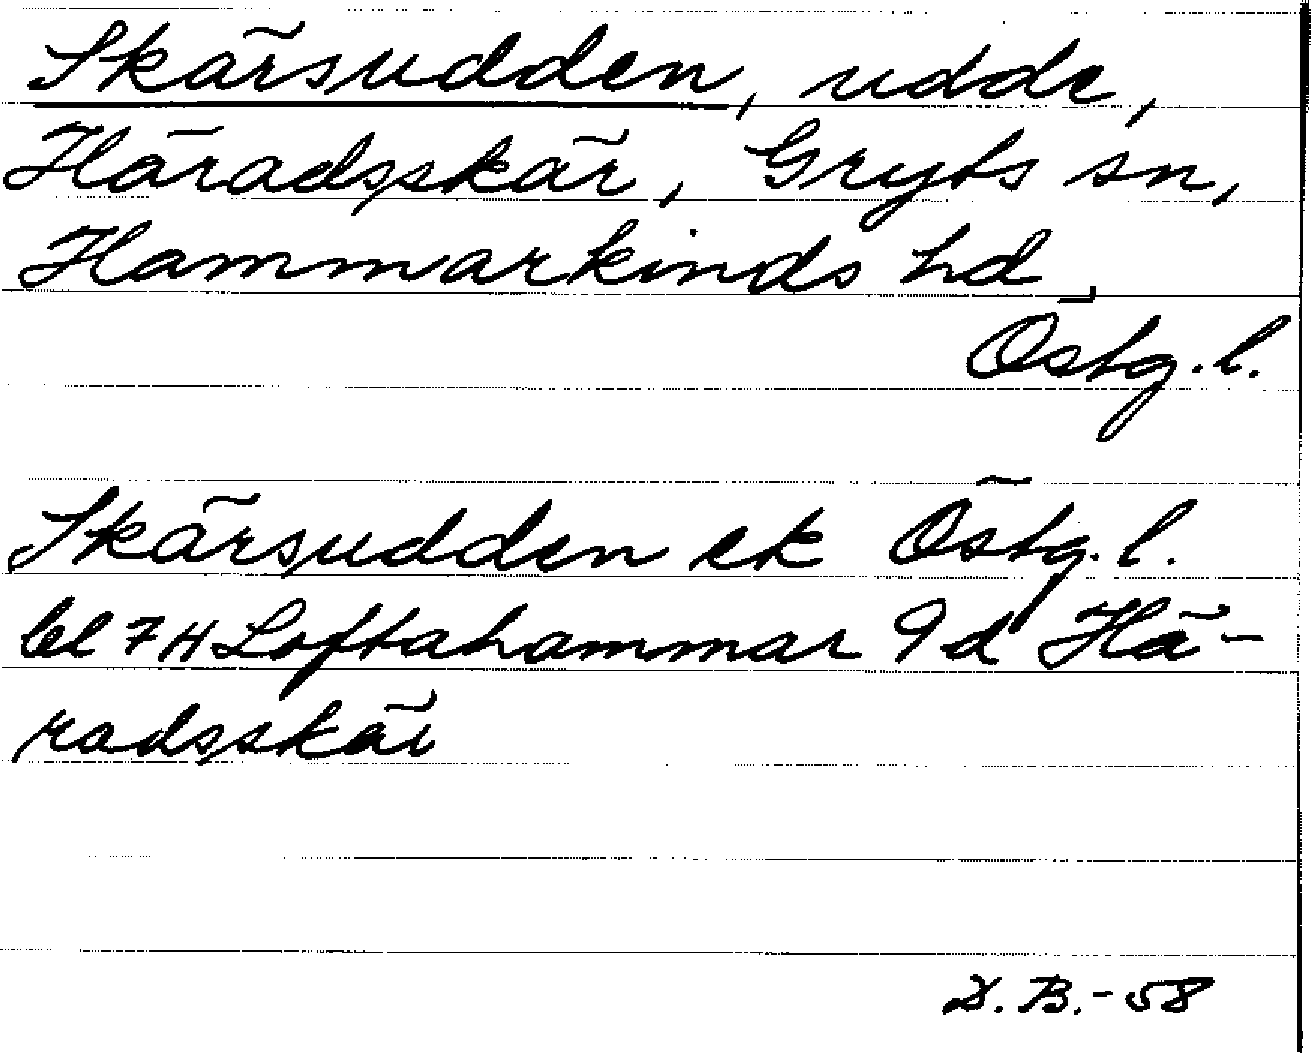 Skärsudden, udde,
Häradsskär, Gryts sn,
Hammarkinds hd,
Östg.l.
Skärsudden ek Östg.l.
bl 7H Loftahammar 9d Hä-
radsskär
D.B.-58